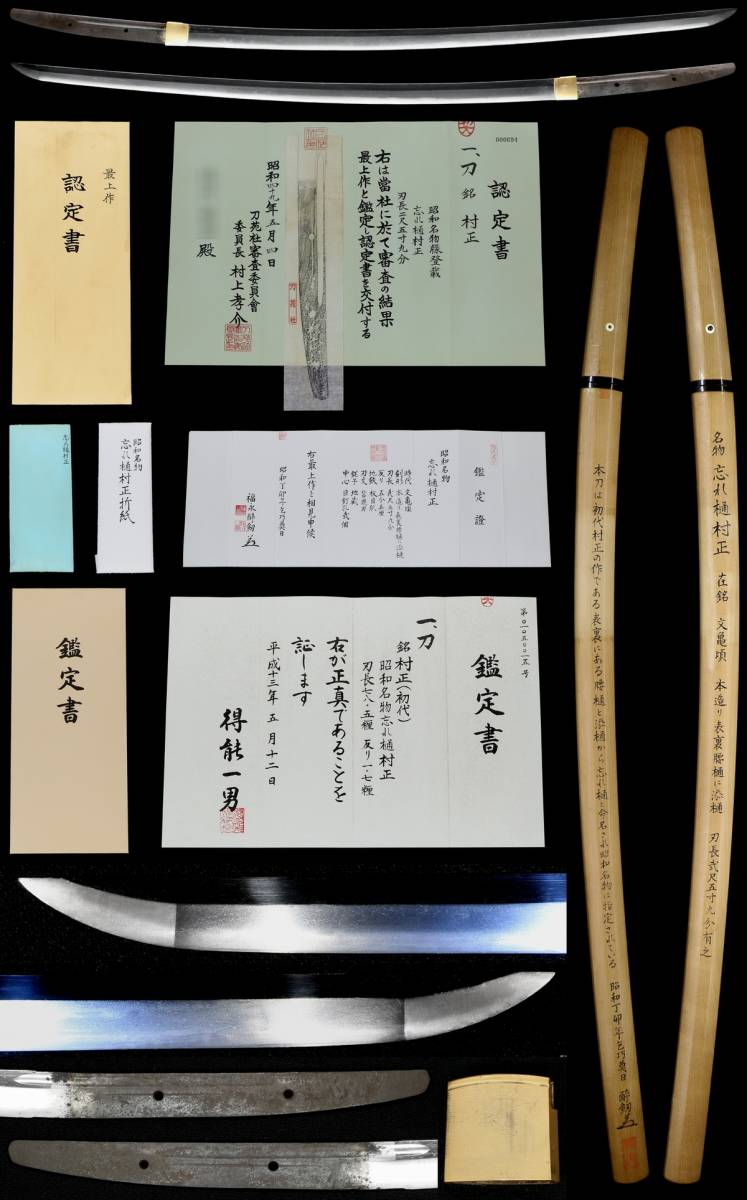 最上作
認定書
000694
認定書
一、刀 銘 村正
昭和名物篇登載
忘れ樋村正
刃長二尺五寸九分
右は當社に於て審査の結果
最上作と鑑定し認定書を交付する
昭和四十九年五月四日
刀苑社審査委員會
委員長 村上孝介
殿
忘れ樋村正
昭和名物
忘れ樋村正折紙
鑑定證
昭和名物
忘れ樋村正
時代 文亀頃
刃長 弐尺五寸九分
右最上作と相見申候
昭和丁卯年乞巧奠日
福永酔剣
鑑定書
鑑定書
一、刀
銘 村正(初代)
昭和名物忘れ樋村正
刃長七八・五糎 反り一・七糎
右が正真であることを
証します
平成十三年 五月十二日
得能一男
名物 忘れ樋村正 在銘 文亀頃 本造り表裏腰樋に添樋 刃長弐尺五寸九分有之
本刀は初代村正の作である表裏にある腰樋と添樋から忘れ樋と命名され昭和名物に指定されている 昭和丁卯年乞巧奠日 酔剣